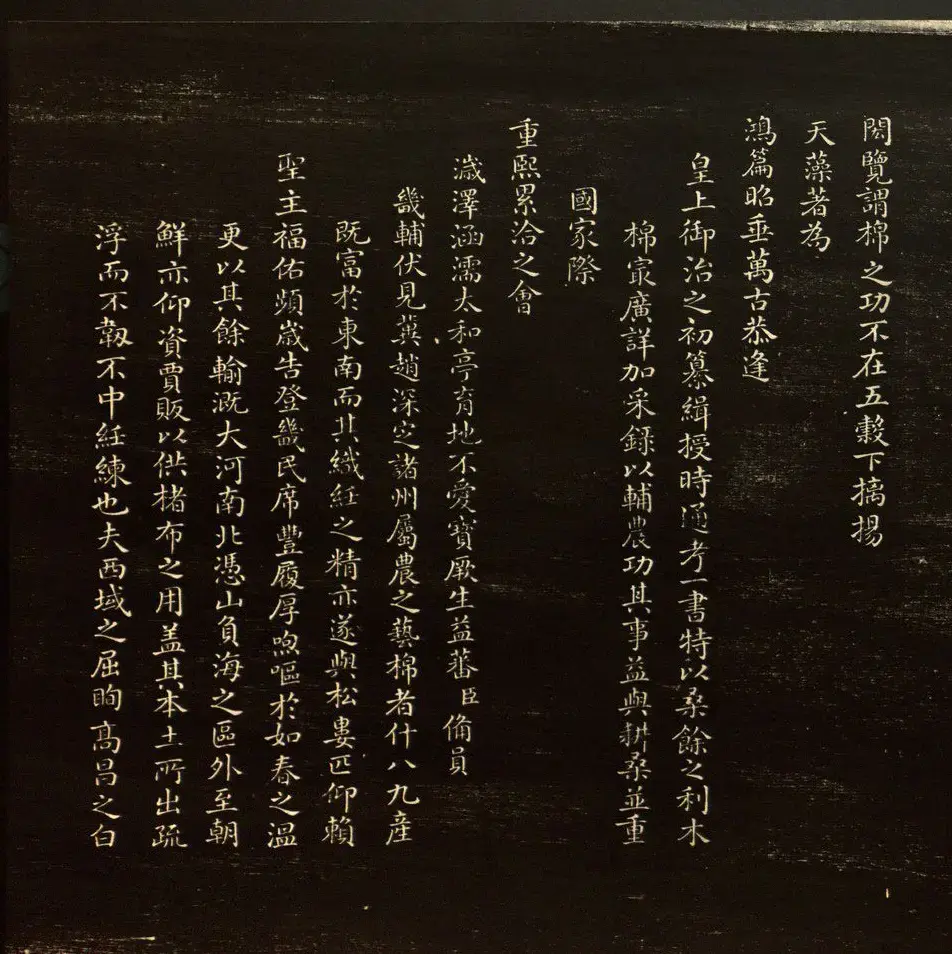 閱覽謂棉之功不在五穀下摛揚
天藻著為
鴻篇昭垂萬古恭逢
皇上御治之初纂緝授時通考一書特以桑餘之利木
棉冣廣詳加采錄以輔農功其事益與耕桑並重
國家際
重熙累洽之會
濊澤涵濡太和亭育地不愛寶厥生益蕃臣俻員
畿輔伏見冀趙深定諸州屬農之藝棉者什八九產
既富於東南而其織紝之精亦遂與松婁匹仰賴
聖主福佑頻歲告登畿民席豐履厚喣嘔於如春之溫
更以其餘輸溉大河南北憑山負海之區外至朝
鮮亦仰資賈販以供楮布之用盖其本土所出疏
浮而不韌不中紝練也夫西域之屈眴高昌之白